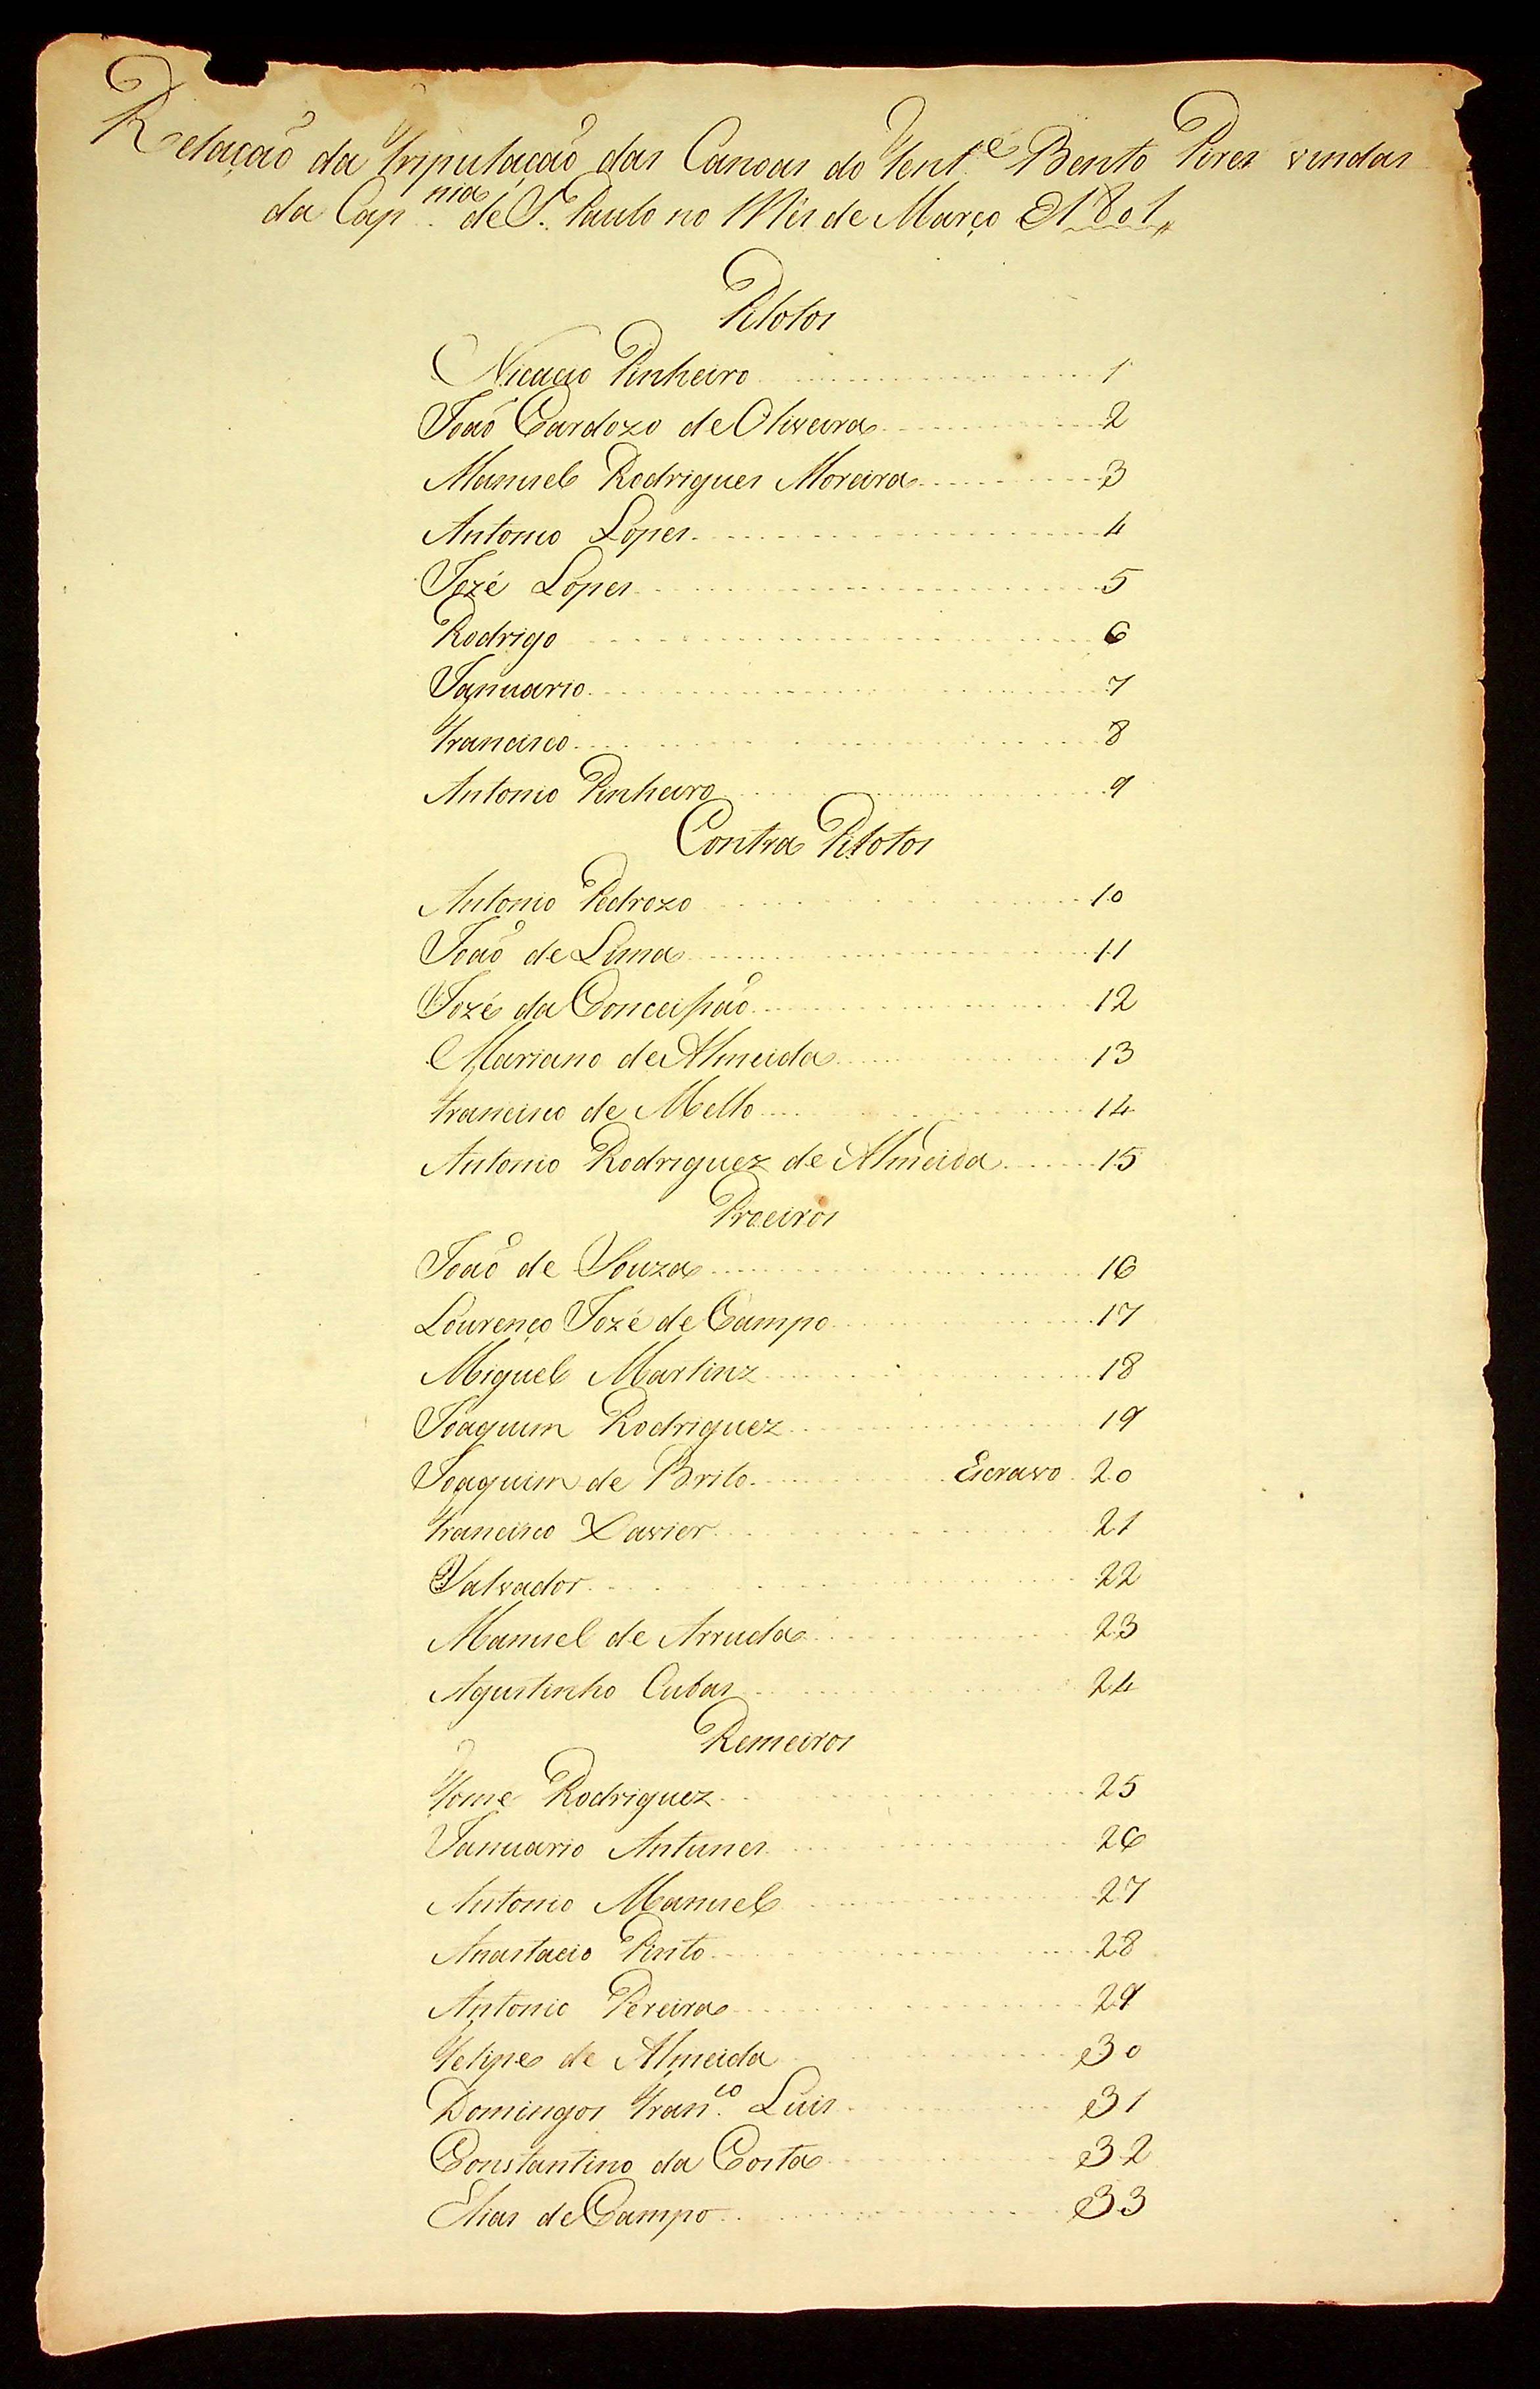 Relação da Tripulação das Canoas do Tent.e Bento Pires vindas
da Cap.nia de S. Paulo no Mês de Março 1801
Pilotos
Nicacio Pinheiro 1
João Cardozo de Oliveira 2
Manuel Rodrigues Moreira 3
Antonio Lopes 4
Jozé Lopes 5
Rodrigo 6
Januario 7
Francisco 8
Antonio Pinheiro 9
Contra Pilotos
Antonio Pedrozo 10
João de Lima 11
Jozé da Conceipsão 12
Mariano de Almeida 13
Francisco de Mello 14
Antonio Rodriguez de Almeida 15
Proeiros
João de Souza 16
Lourenço Jozé de Campo 17
Miguel Martinz 18
Joaquim Rodriguez 19
Joaquim de Brito Escravo 20
Francisco Xavier 21
Salvador 22
Manuel de Arruda 23
Agustinho Cubas 24
Remeiros
Tome Rodriguez 25
Januario Antunes 26
Antonio Manuel 27
Anastacio Pinto 28
Antonio Pereira 29
Felipe de Almeida 30
Domingos Fran.co Luis 31
Constantino da Costa 32
Elias de Campo 33